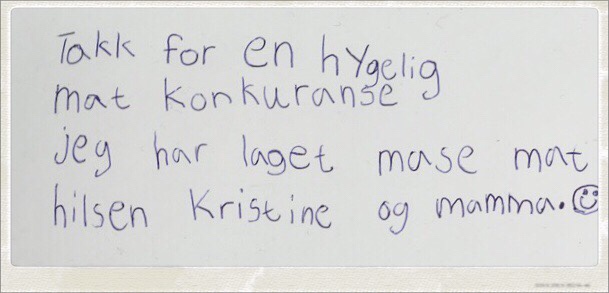 Takk for en hygelig
mat konkuranse
jeg har laget mase mat
hilsen Kristine og mamma.